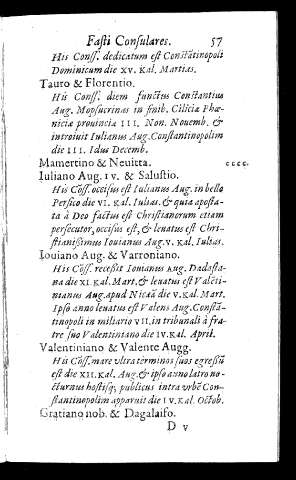 Fasti Consulares. 57
His Conss. dedicatum est Constātinopoli
Dominicum die XV. Kal. Martias.
Tauro & Florentio.
His Conss. diem functus Constantius
Aug. Mopsucrinas in finib. Ciliciæ Phœ-
niciæ prouincia III. Non. Nouemb. &
introiuit Iulianus Aug. Constantinopolim
die III. Idus Decemb.
Mamertino & Neuitta. cccc.
Iuliano Aug. IV. & Salustio.
His Coſſ. occisus est Iulianus Aug. in bello
Persico die VI. Kal. Iulias. & quia aposta-
ta à Deo factus est Christianorum etiam
persecutor, occisus est, & leuatus est Chri-
stianissimus Iouianus Aug. V. Kal. Iulias.
Iouiano Aug. & Varroniano.
His Coſſ. recessit Iouianus AUG. Dadasta-
na die XI. Kal. Mart. & leuatus est Valēti-
nianus Aug. apud Nicaā die V. Kal. Mart.
Ipso anno leuatus est Valens Aug. Constā-
tinopoli in miliario VII. in tribunali à fra-
tre suo Valentiniano die IV. Kal. April.
Valentiniano & Valente Augg.
His Cōſſ. mare vltra terminos suos egressū
est die XII. Kal. Aug. & ipso anno latro no-
cturnus hostisq; publicus intra vrbē Con-
stantinopolim apparuit die IV. Kal. Octob.
Gratiano nob. & Dagalaifo.
D v